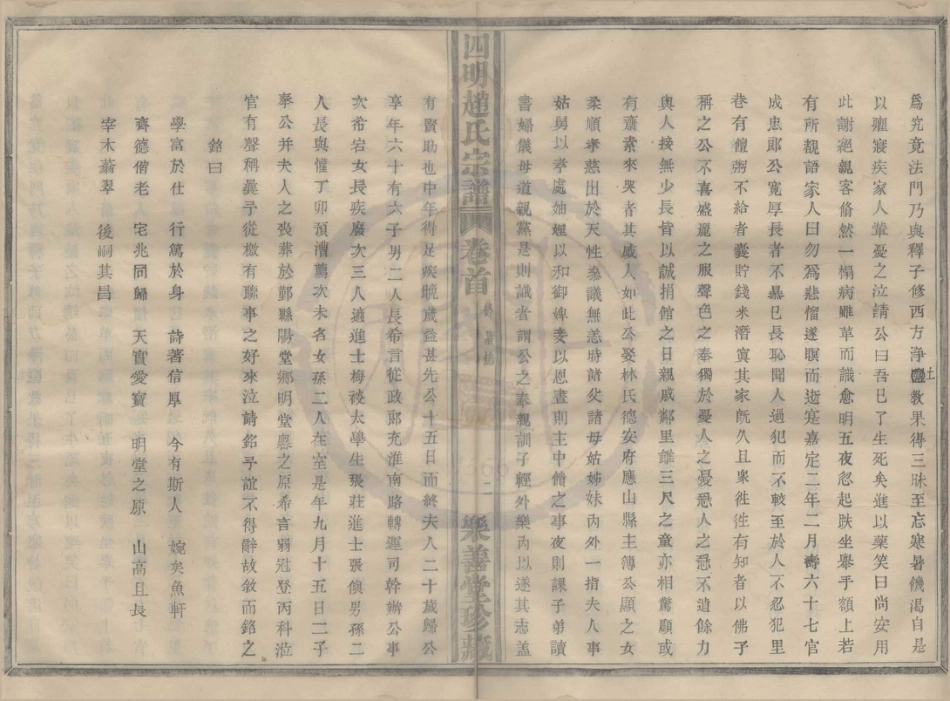 為究竟法門乃與釋子修西方淨土敎果得三昧至忘寒暑饑渴自是
以癯寢疾家人輩憂之泣請公曰吾已了生死矣進以藥笑曰尚安用
此謝絕親客翛然一榻病雖革而識愈明五夜忽起趺坐舉手額上若
有所覩語家人曰勿為悲惱遂瞑而逝寔嘉定二年二月壽六十七官
成忠郞公寬厚長者不暴已長恥聞人過犯而不較至於人不忍犯里
巷有饘粥不給者囊貯錢米潛寘其家旣久且衆徃徃有知者以佛子
稱之公不喜盛麗之服聲色之奉獨於憂人之憂恐人之恐不遺餘力
與人接無少長皆以誠捐館之日親戚鄰里雖三尺之童亦相驚顧或
有齋素來哭者其感人如此公娶林氏德安府應山縣主簿公顯之女
柔順孝慈出於天性桑議無恙時諸父諸母姑姊妹內外一指夫人事
姑舅以孝處妯娌以和御婢妾以恩晝則主中饋之事夜則課子弟讀
書婦儀母道親黨是則識者謂公之奉親訓子輕外樂內以遂其志蓋
四明趙氏宗譜 卷首 二 樂善堂珍藏
有賢助也中年得足疾晚歲益甚先公十五日而終夫人二十歲歸公
享年六十有六子男二人長希言從政郞充淮南路轉運司幹辦公事
次希宕女長疾廢次三人適進士梅祾太學生張莊進士張儉男孫二
人長與懽丁卯預漕薦次未名女孫二人在室是年九月十五日二子
奉公并夫人之喪葬於鄞縣陽堂鄉明堂嶴之原希言弱冠登丙科涖
官有聲稱曩予從檄有聯事之好來泣請銘予誼不得辭故敘而銘之
銘曰
學富於仕 行篤於身 詩著信厚 今有斯人 婉矣魚軒
齊德偕老 宅兆同歸 天實愛寶 明堂之原 山高且長
宰木蓊翠 後嗣其昌